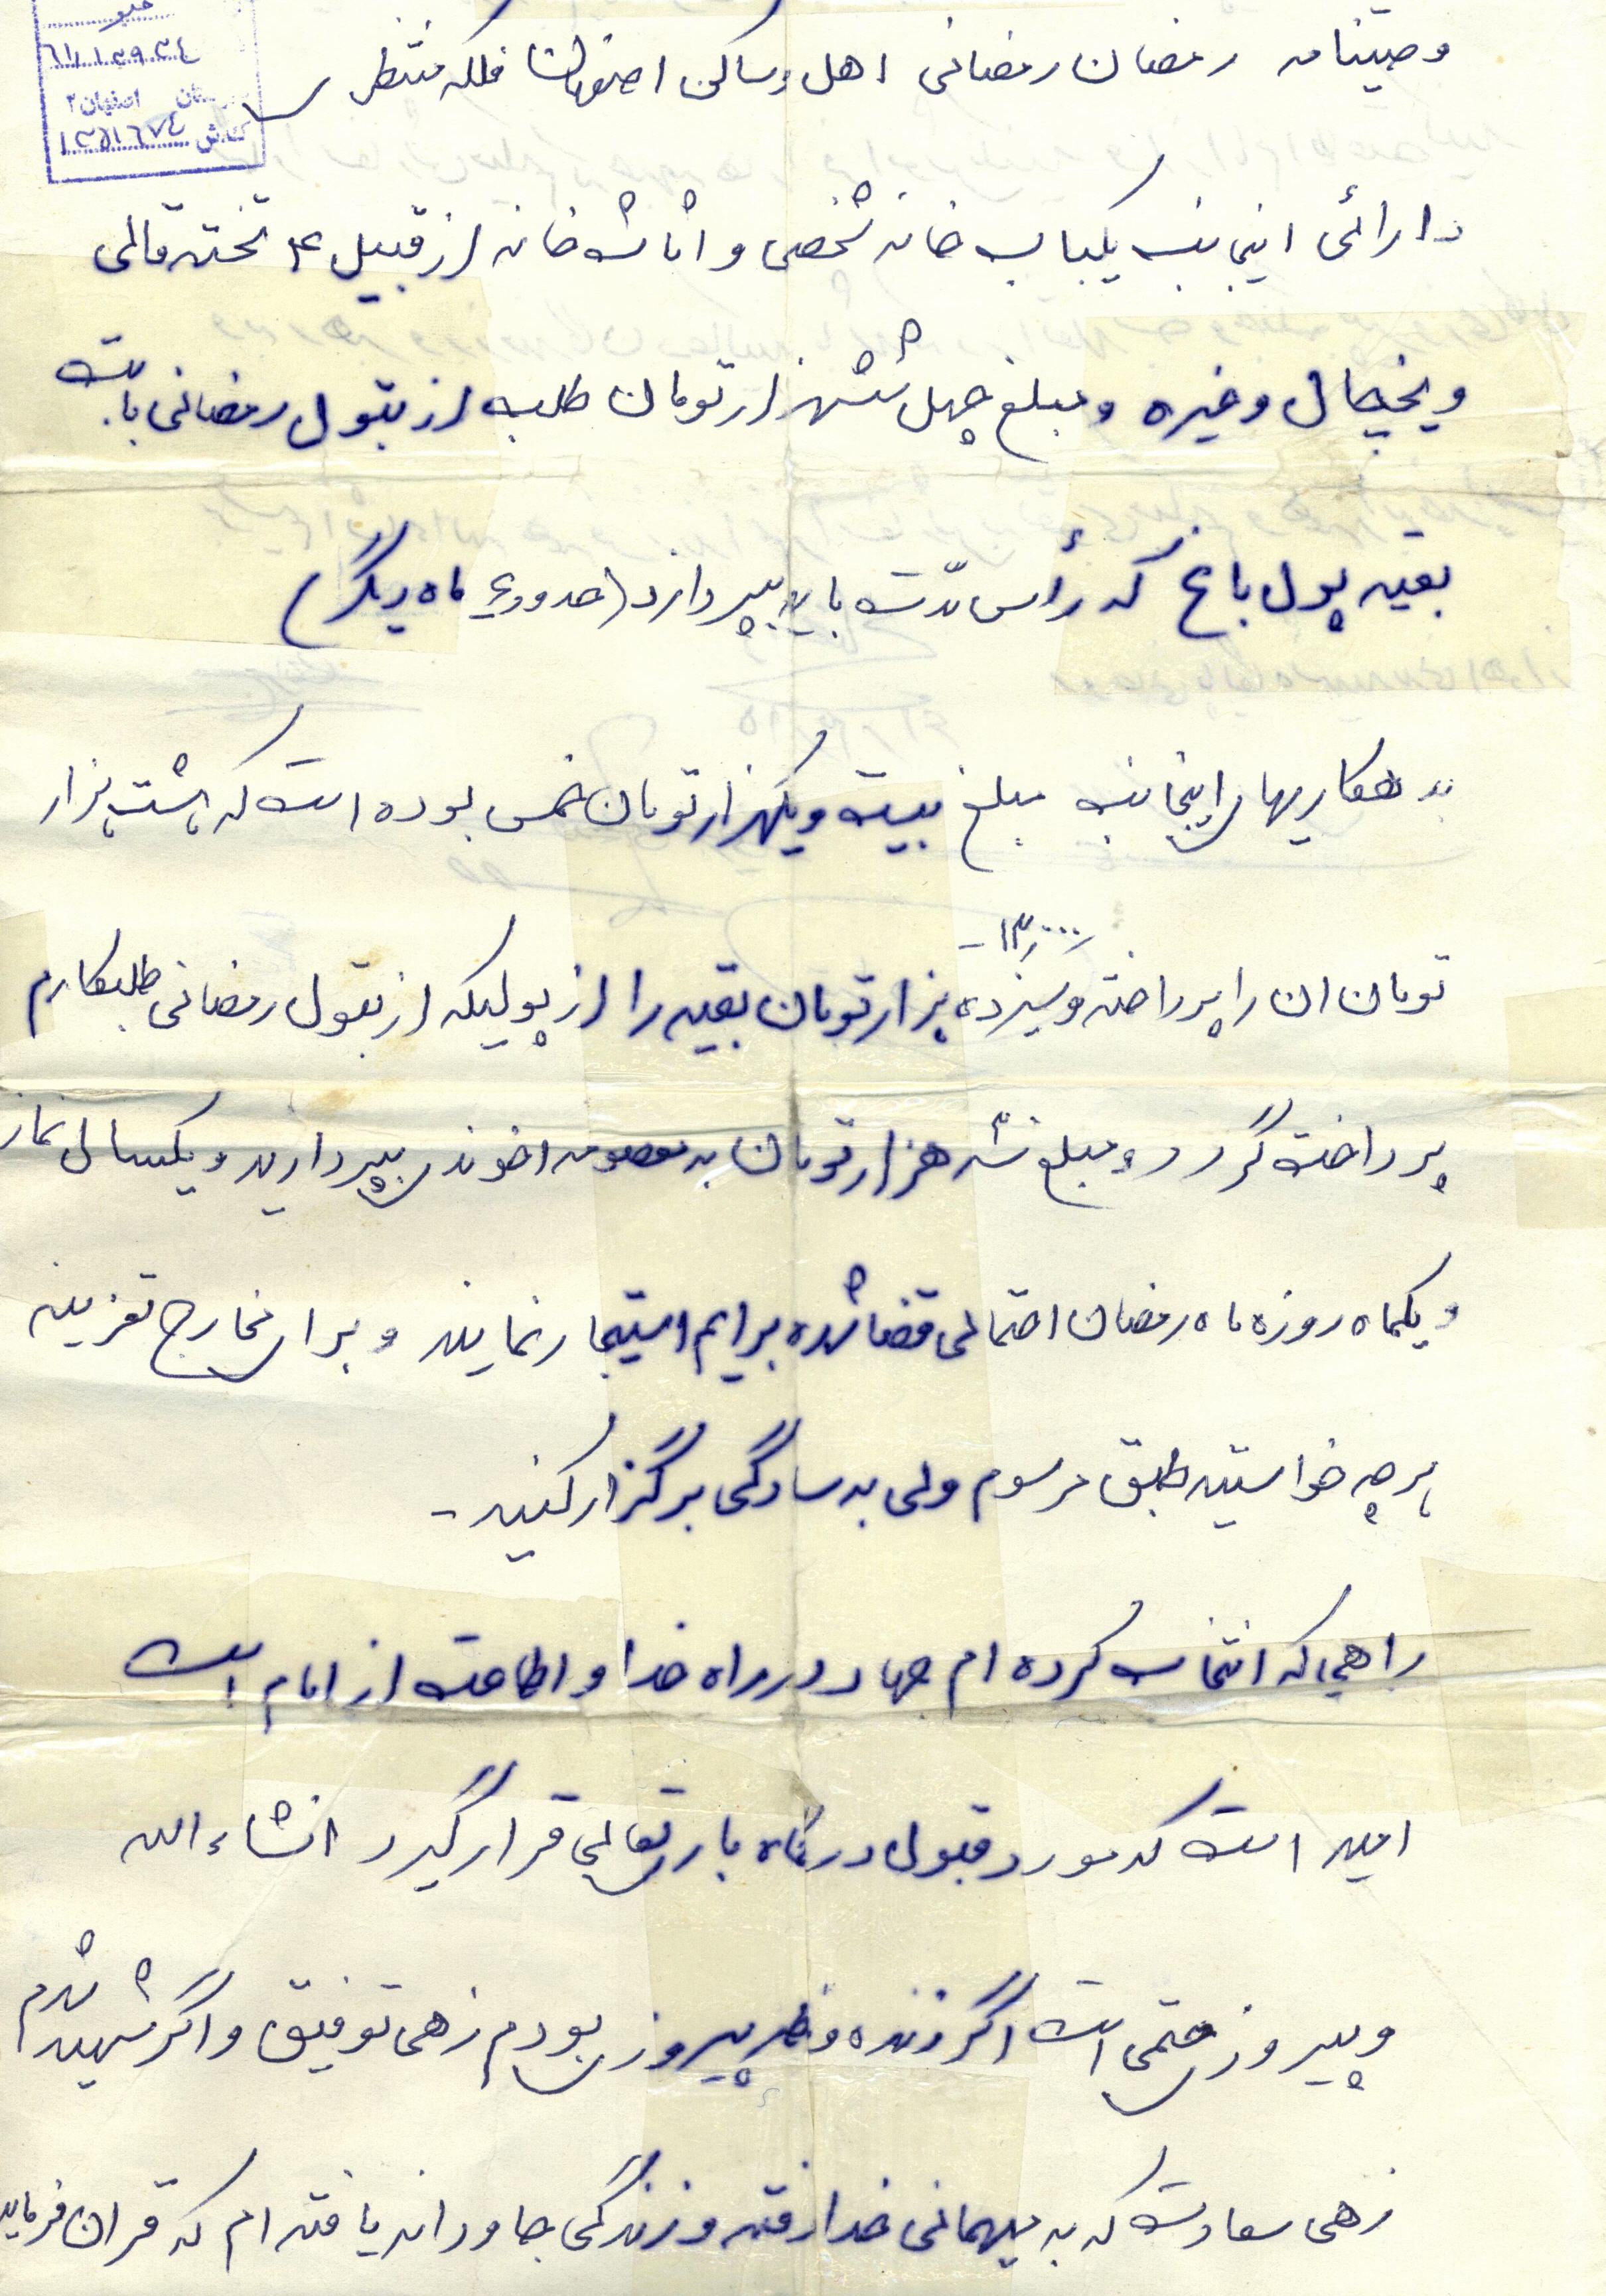 وصیتنامه رمضان رمضانی اهل و ساکن اصفهان فلکه منتظری
۶۱۱۲۹۳۴
اصفهان ۲
۱۳۵۱۶۷۴
دارائی اینجانب یکباب خانه شخصی و اثاث خانه از قبیل ۴ تخته قالی
و یخچال و غیره و مبلغ چهل ششهزار تومان طلب از بتول رمضانی بابت
بقیه پول باغ که رأس مدّت باید بپردازد (حدود ۴ ماه دیگر)
بدهکاریهای اینجانب مبلغ بیست و یکهزار تومان خمس بوده است که هشت هزار
۱۳/۰۰۰/-
تومان ان را پرداخته و سیزده هزار تومان بقیه را از پولیکه از بتول رمضانی طلبکارم
پرداخت گردد و مبلغ شه هزار تومان به معصومه اخوندی بپردازید و یکسال نماز
و یکماه روزه ماه رمضان احتمالی قضا شده برایم استیجار نمایند و برای مخارج تعزیه
هر چه خواستید طبق مرسوم ولی به سادگی برگزار کنید -
راهی که انتخاب کرده ام جهاد در راه خدا و اطاعت از امام است
امید است که مورد قبول درگاه باریتعالی قرار گیرد انشاءالله
و پیروزی حتمی است اگر زنده و پیروز بودم زهی توفیق و اگر شهید شدم
زهی سعادت که به میهمانی خدا رفته و زندگی جاودانه یافته ام که قران فرماید